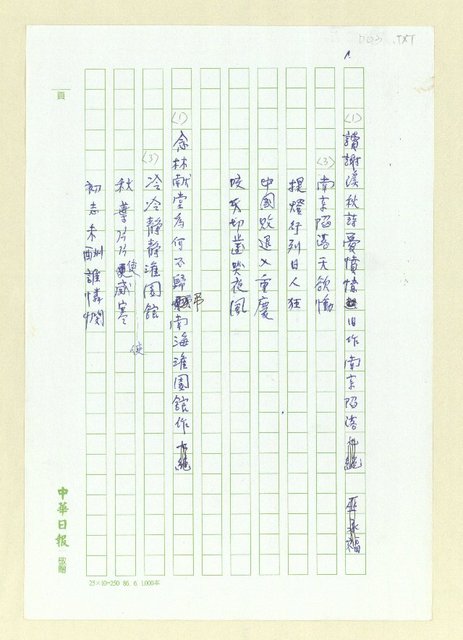 D03 .TXT
(1) 讀謝溪秋詩憂憤憶旧作南京陷落 巫永福
(3) 南京陷落天欲慟
提燈行列日人狂
中國敗退入重慶
咬牙切齒哭夜風
(1) 念林献堂為何不歸弔南海淮園館作
(3) 冷冷靜靜淮園館
秋葉片片使感寒
初志未酬誰憐憫
使
頁
中華日報
25×10=250 86. 6. 1,000本